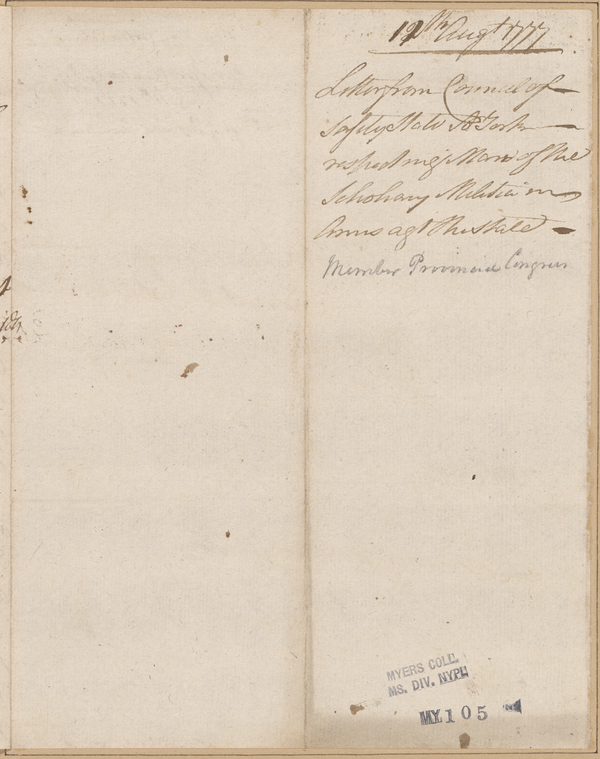 12th Augt 1777
Letter from Council of
Safety State N York
respecting Many of the
Schohary Militia in
Arms agt the State
Member Provincial Congress
MYERS COLL.
MS. DIV. NYPL
MY105